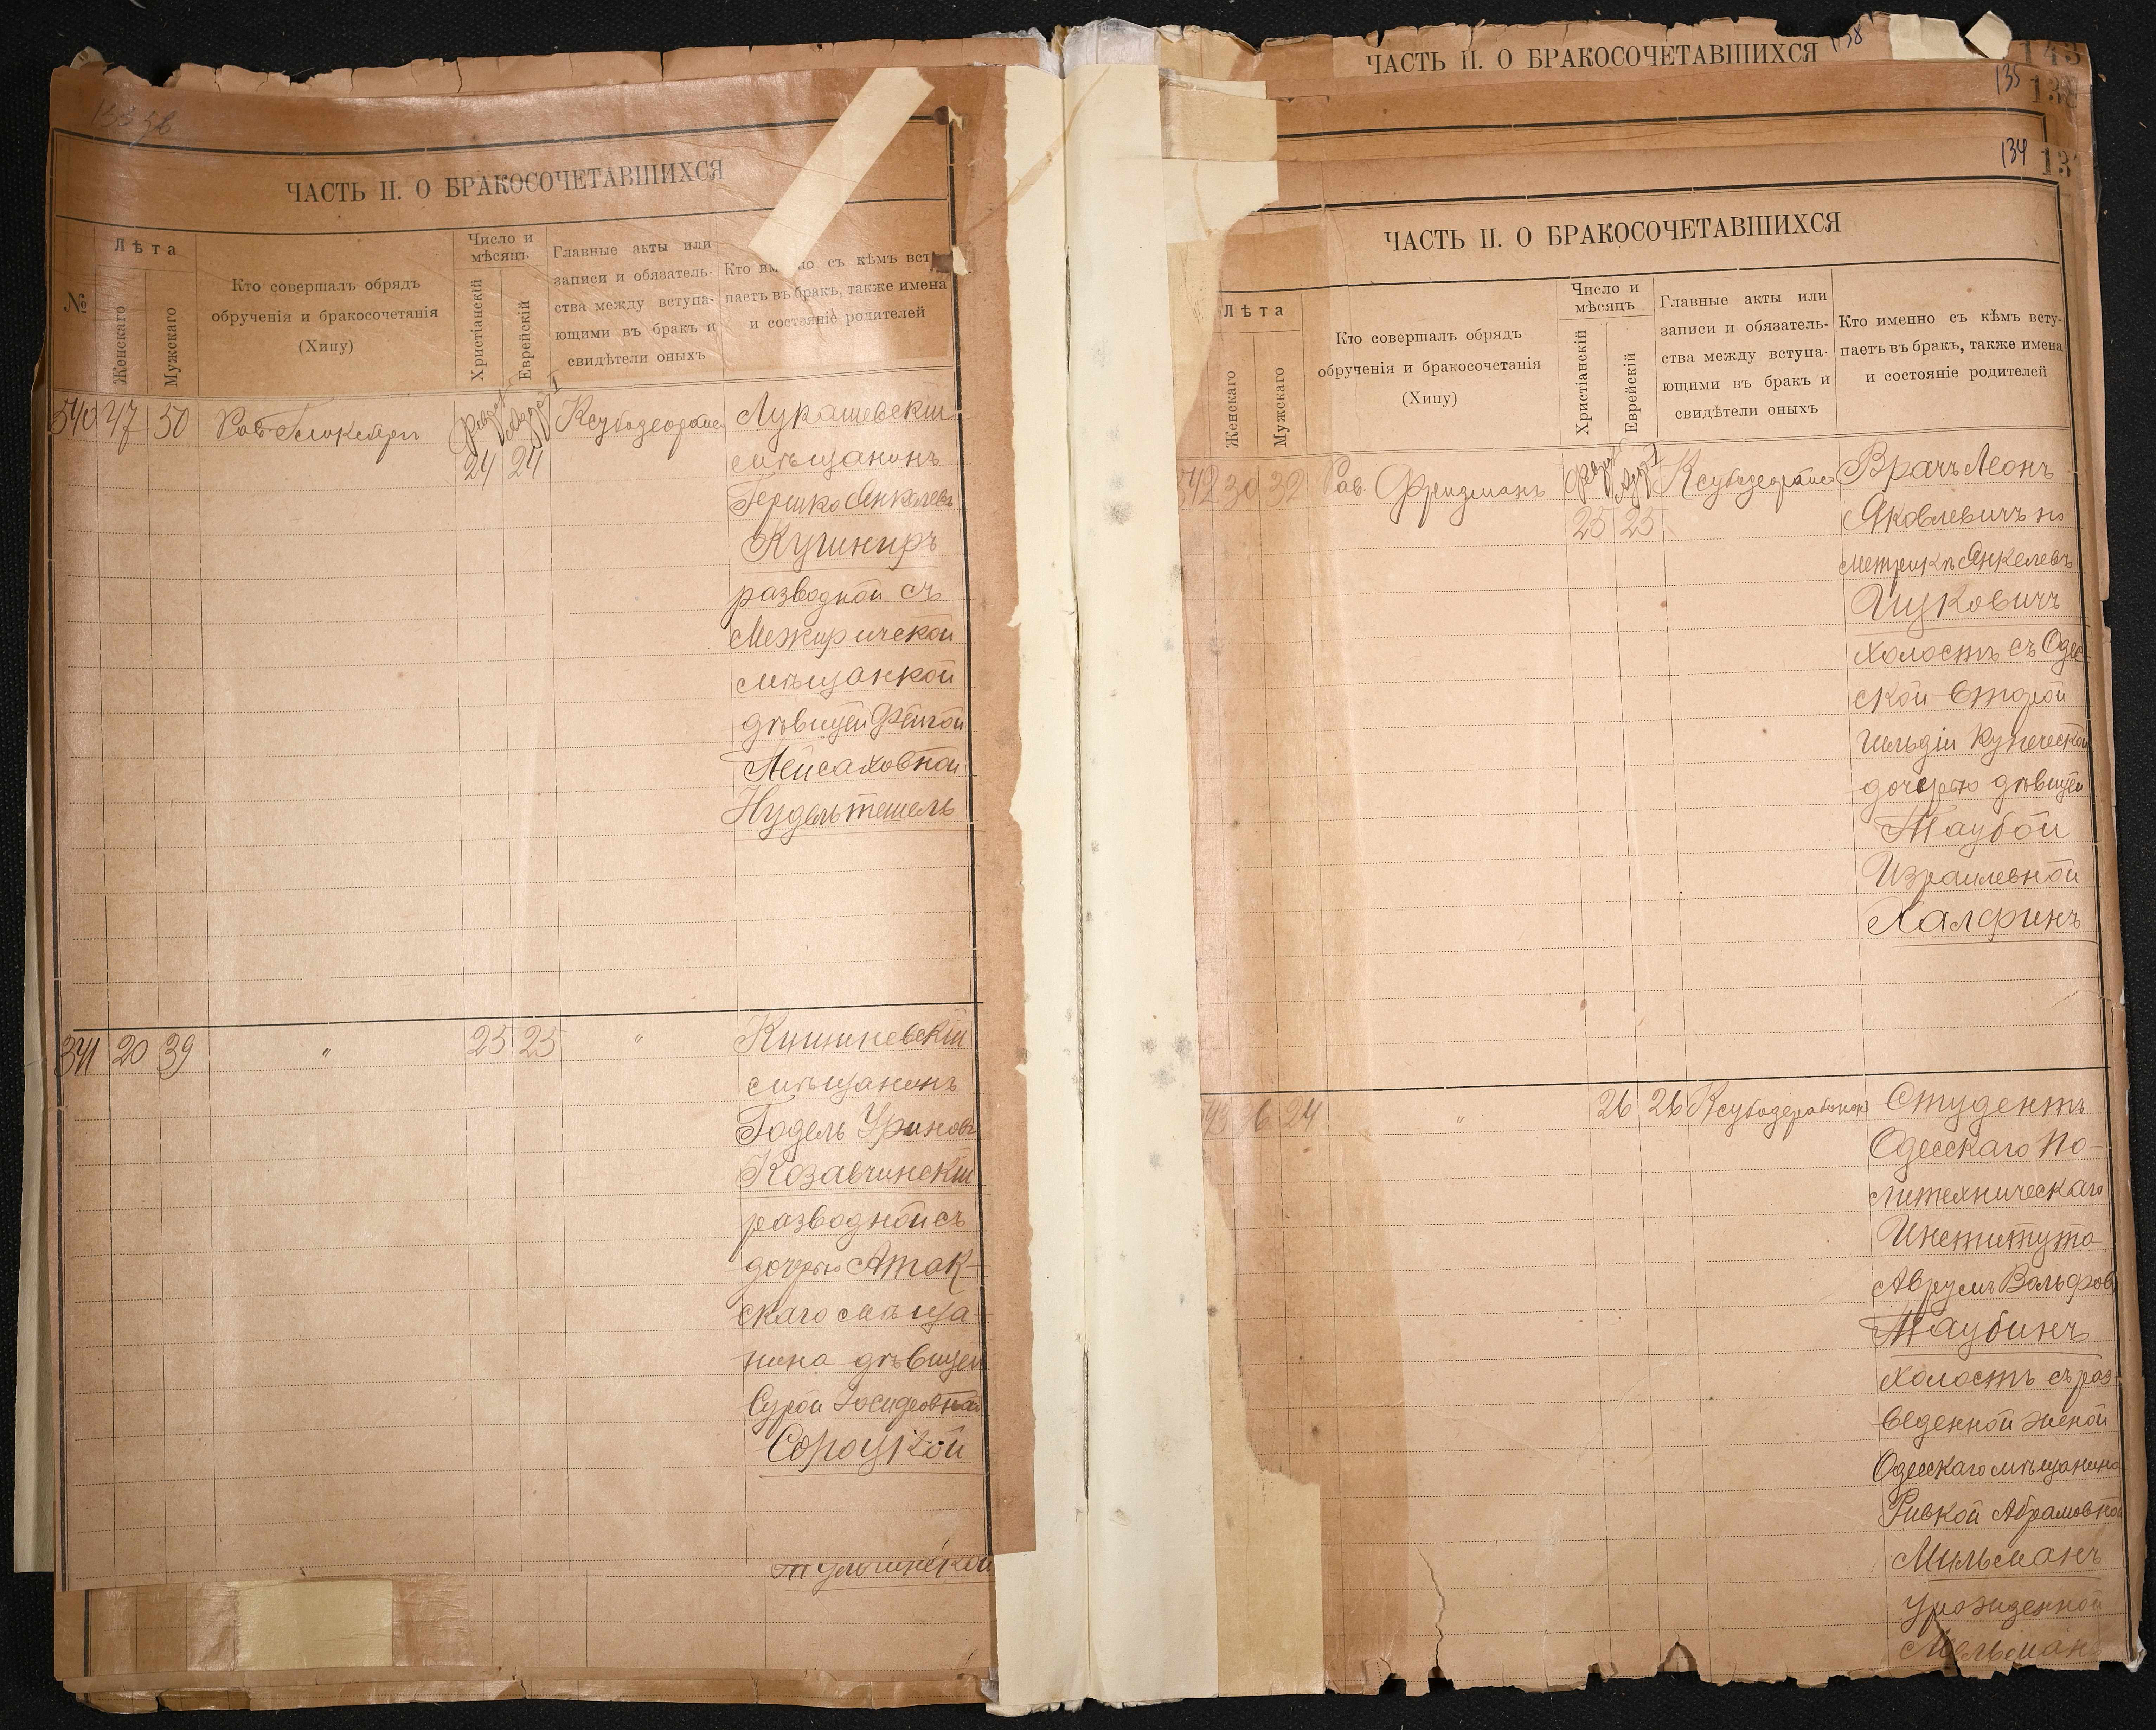 ЧАСТЬ II. О БРАКОСОЧЕТАВШИХСЯ
№
Лѣта
Женскаго
Мужскаго
Кто совершалъ обрядъ
обрученія и бракосочетанія
(Хипу)
Число и
мѣсяцъ
Христіанскій
Еврейскій
Главные акты или
записи и обязатель-
ства между вступа-
ющими въ бракъ и
свидѣтели оныхъ
съ кѣмъ
паетъ въ бракъ, также имена
и состояніе родителей
47 50 Рав.
24 24
Лукашевскій
мѣщанинъ
Гершко Янкелевъ
Кушниръ
разводной съ
Межиричской
мѣщанкой
дѣвицей Фейгой
Пейсаховной
Нудельтешель
341 20 39 " 25 25 "
Кишиневскій
мѣщанинъ
Годель Уриновъ
Козавчинскій
разводной съ
дочерью Атак-
скаго мѣща-
нина дѣвицей
Сурой Іосифовной
Сороцкой
Тульчинскій
ЧАСТЬ II. О БРАКОСОЧЕТАВШИХСЯ
138
143
135
138
134
ЧАСТЬ II. О БРАКОСОЧЕТАВШИХСЯ
Лѣта
Женскаго
Мужскаго
Кто совершалъ обрядъ
обрученія и бракосочетанія
(Хипу)
Число и
мѣсяцъ
Христіанскій
Еврейскій
Главные акты или
записи и обязатель-
ства между вступа-
ющими въ бракъ и
свидѣтели оныхъ
Кто именно съ кѣмъ всту-
паетъ въ бракъ, также имена
и состояніе родителей
342 30 32 Рав. Фридманъ
25 25
Врачъ Леонъ
Яковлевичъ по
метрикѣ Янкелевъ
Ицковичъ
холостъ съ Одес-
ской второй
гильдіи купеческой
дочерью дѣвицей
Таубой
Израилевной
Халфинъ
24 " 26 26
Студентъ
Одесскаго По-
литехническаго
Института
Аврумъ Вольфовъ
Таубинъ
холостъ съ раз-
веденной женой
Одесскаго мѣщанина
Ривкой Абрамовной
Мильманъ
урожденной